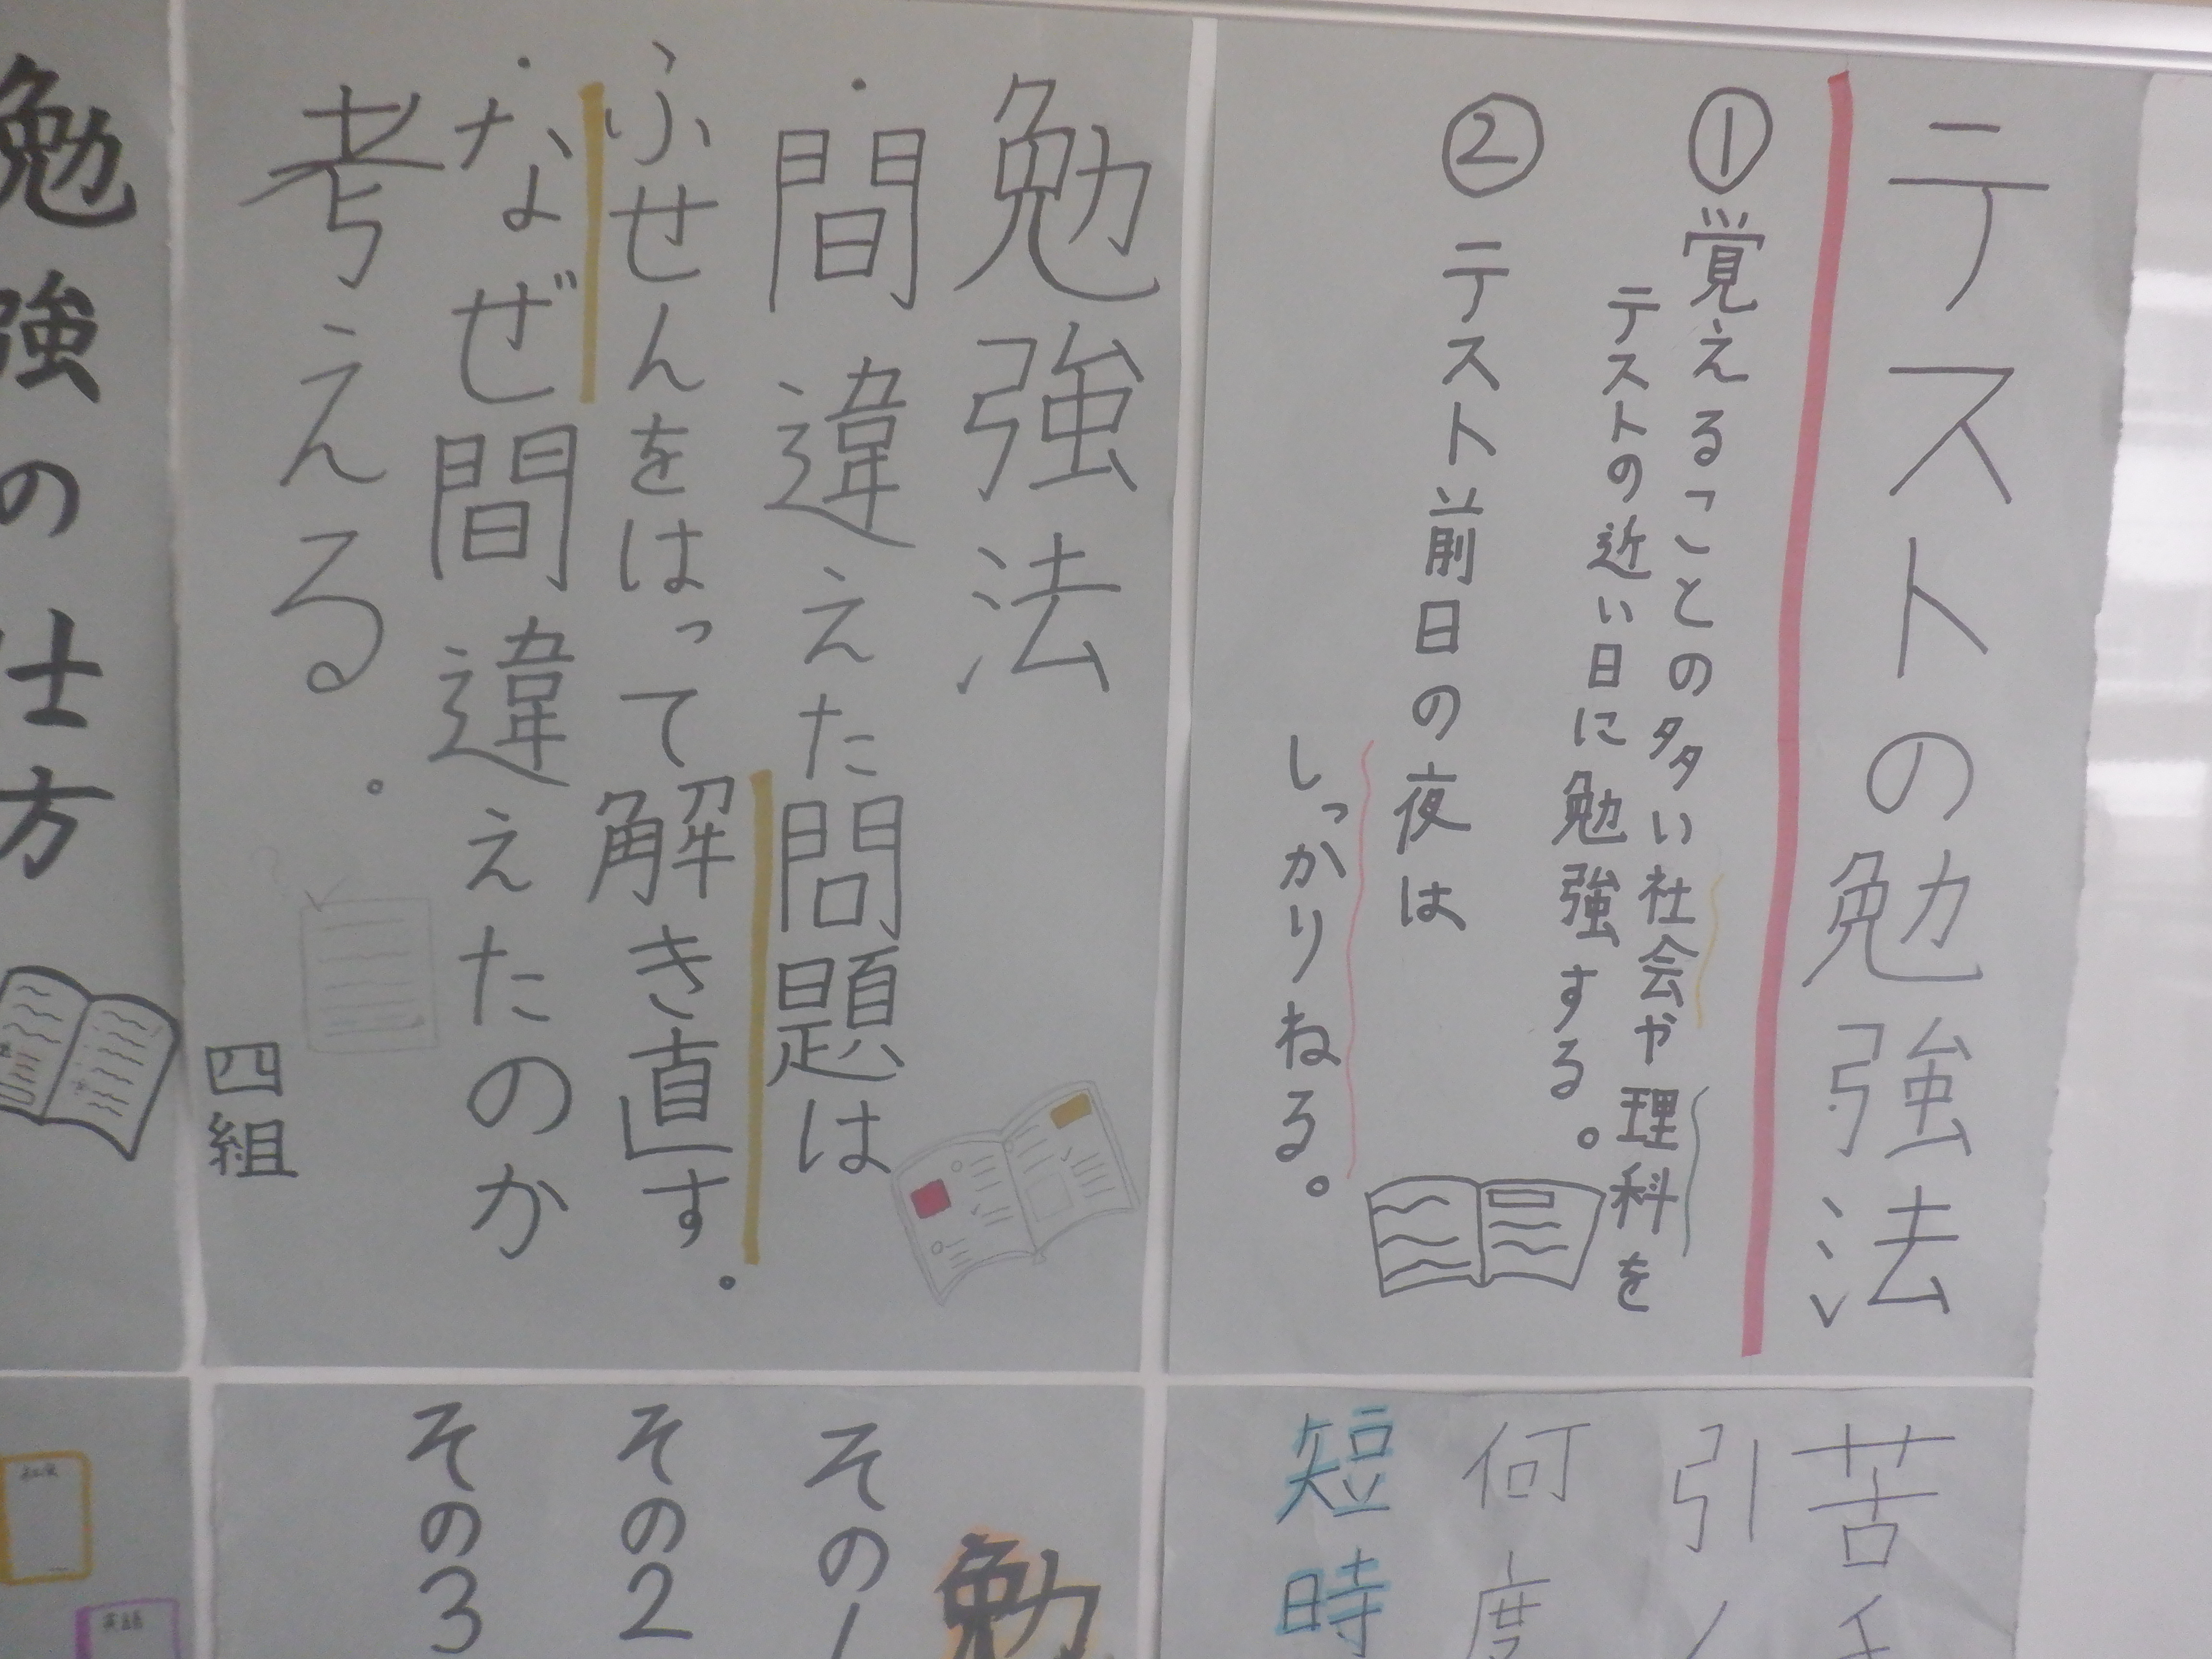 テストの勉強法
①覚えることの多い社会や理科を
テストの近い日に勉強する。
②テスト前日の夜は
しっかりねる。
勉強法
・間違えた問題は
ふせんをはって解き直す。
・なぜ間違えたのか
考える。
四組
勉強の仕方
苦手
引
何度
短時
勉
その1
その2
その3
英語